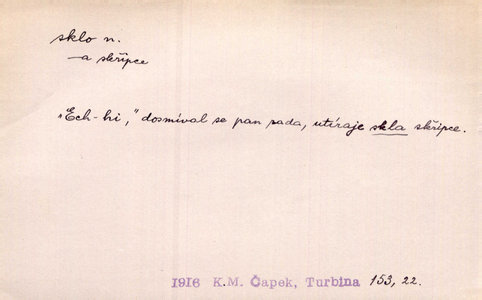 sklo n.
—a skřipce
„Ech-hi," dosmíval se pan rada, utíraje skla skřipce.
1916 K.M. Čapek, Turbina 153, 22.